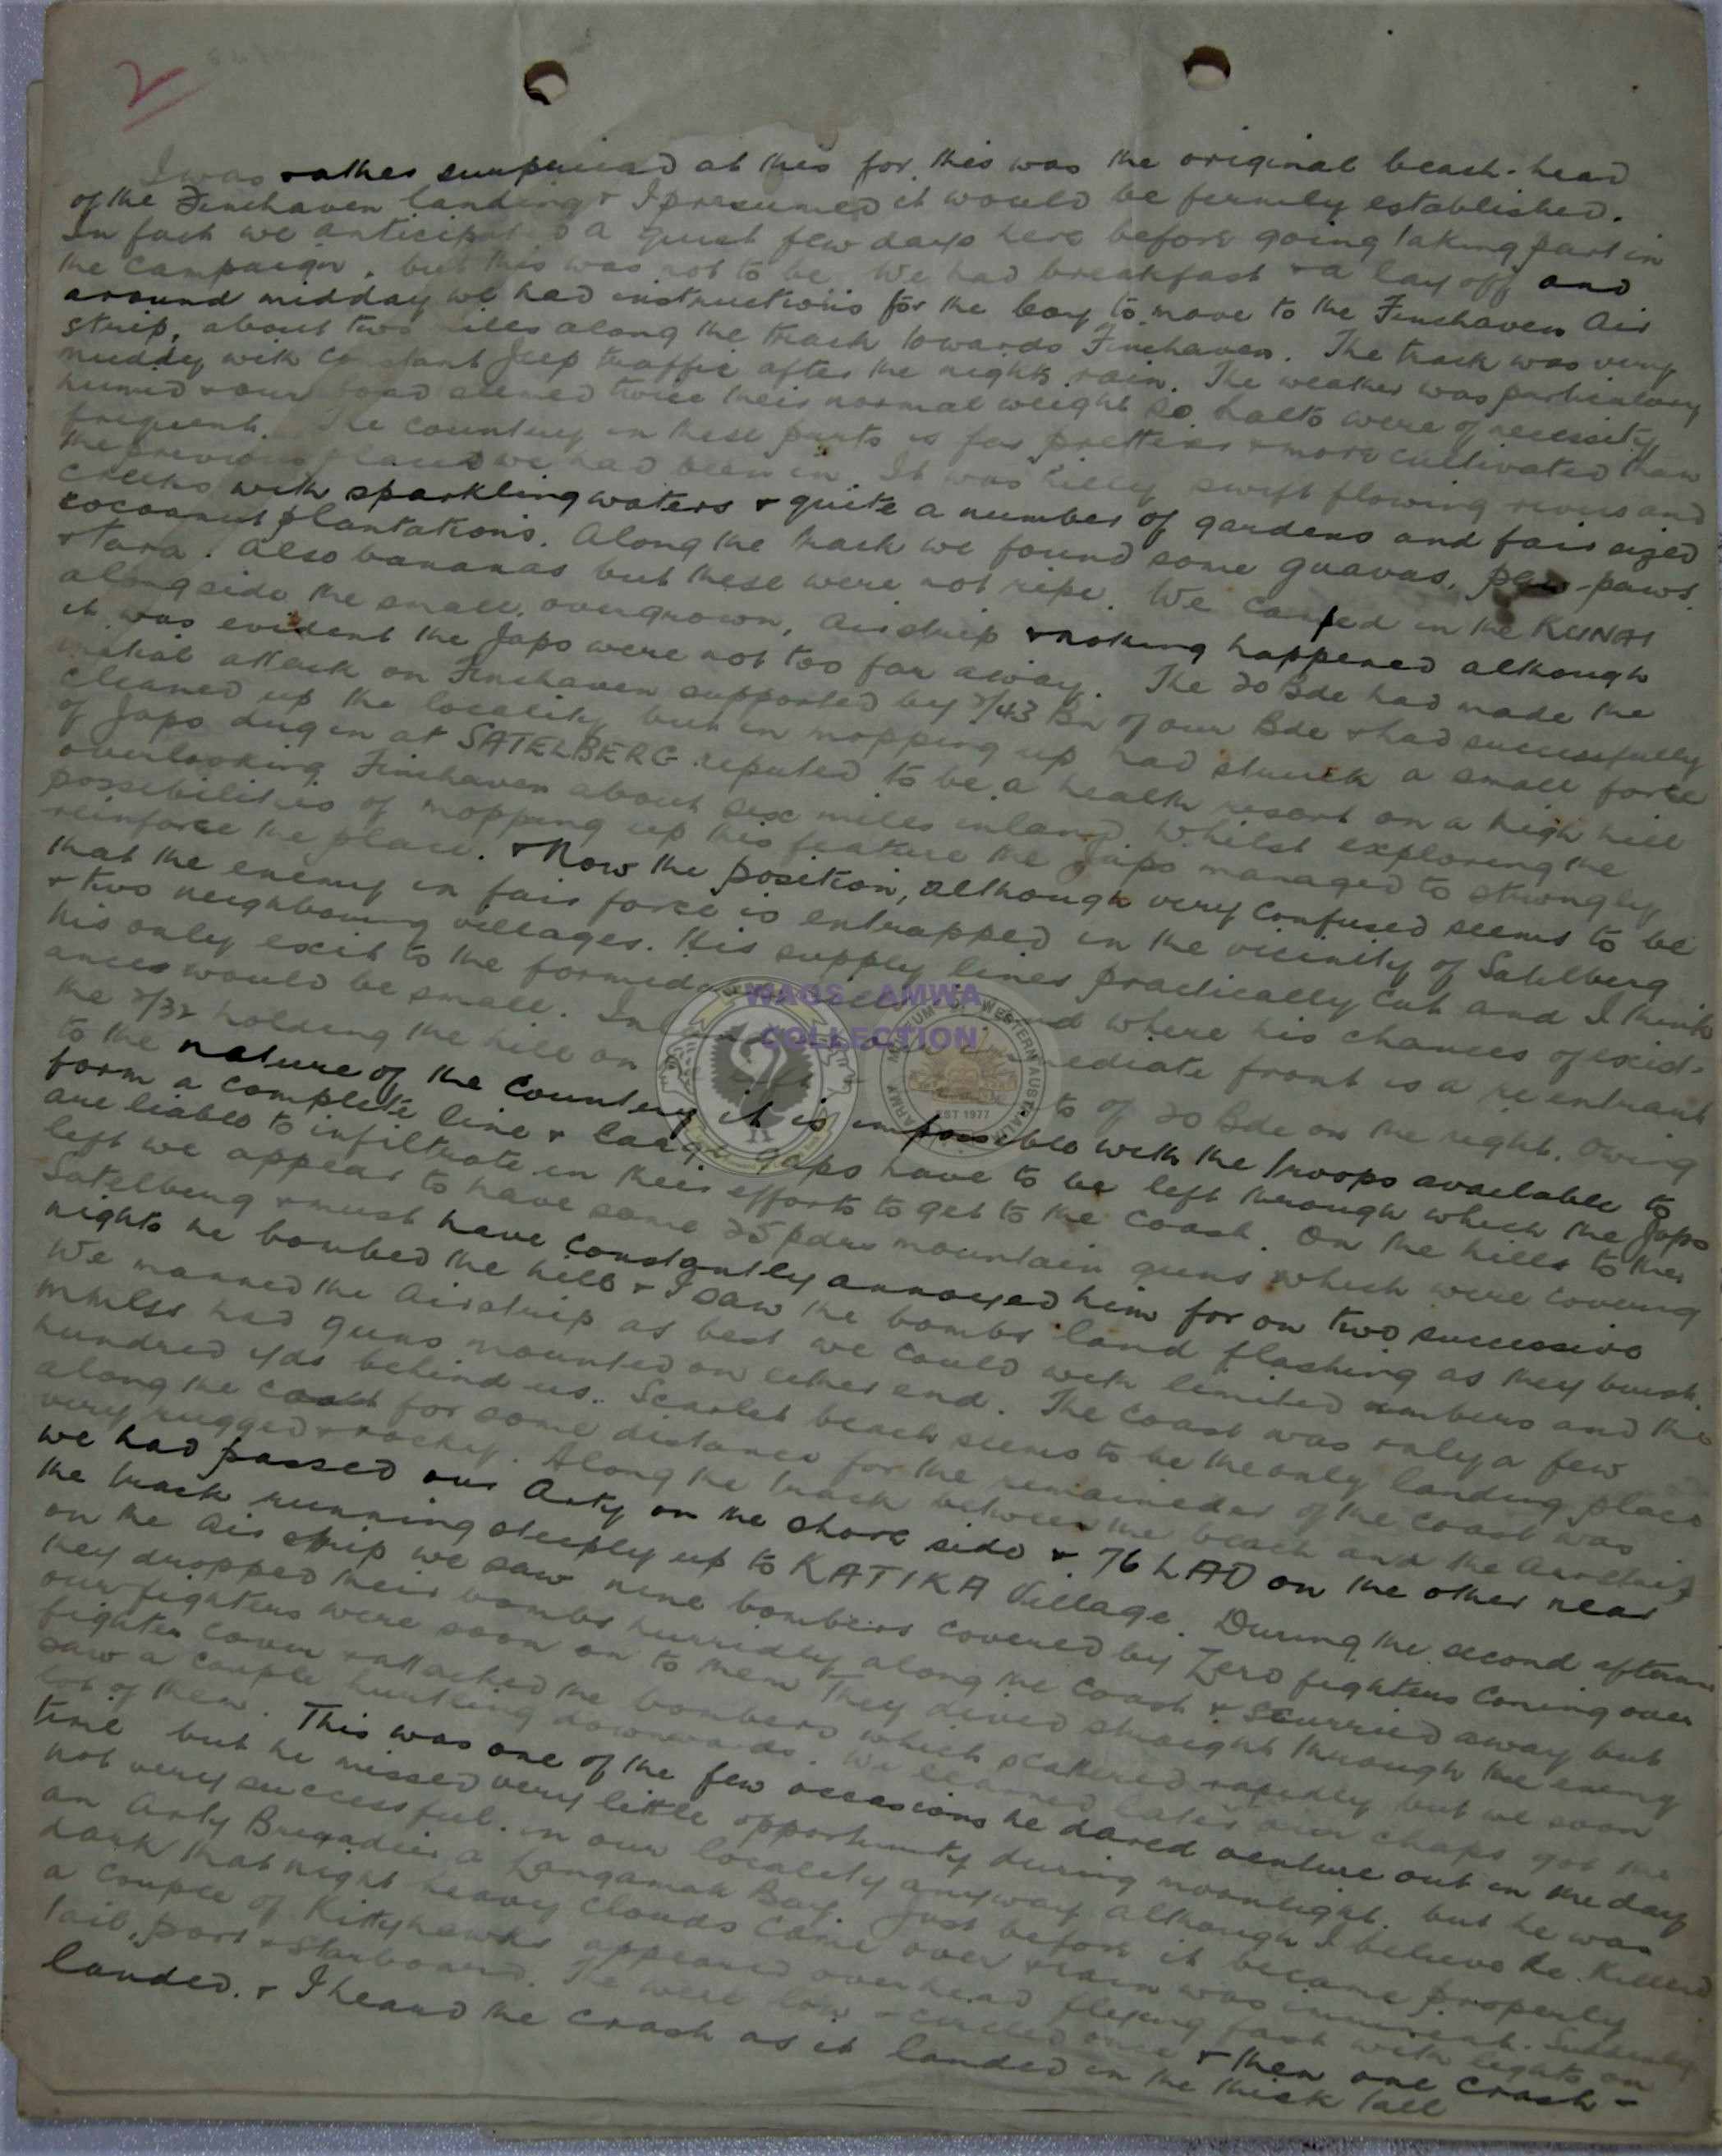 2
I was rather surprised at this for this was the original beach-head
of the Finchaven landing & I presumed it would be firmly established.
In fact we anticipated a quiet few days here before going taking part in
the campaign, but this was not to be. We had breakfast & a lay off and
around midday we had instructions for the coy to move to the Finchaven Air
strip, about two miles along the track towards Finchaven. The track was very
muddy with constant Jeep traffic after the nights rain. The weather was particulary
humid & our load seemed twice their normal weight so halts were of necessity
frequent. The country in these parts is far prettier & more cultivated than
the previous places we had been in. It was hilly swift flowing rivers and
creeks with sparkling waters & quite a number of gardens and fair sized
cocoanut plantations. Along the track we found some guavas, paw-paws.
& taro. Also bananas but these were not ripe. We camped in the KUNAI
alongside the small, overgrown, airstrip & nothing happened although
it was evident the Japs were not too far away. The 20 Bde had made the
initial attack on Finchaven supported by 2/43 Bn of our Bde & had successfully
cleaned up the locality but in mopping up had struck a small force
of Japs dug in at SATELBERG reputed to be a health resort on a high hill
overlooking Finchaven about six miles inland. Whilst exploring the
possibilities of mopping up this feature the Japs managed to strongly
reinforce the place. & Now the position, although very confused seems to be
that the enemy in fair force is entrapped in the vicinity of Satelberg
& two neighbouring villages. His supply lines practically cut and I think
his only exit to the where his chances of exist-
ances would be small. mediate front is a re entrant
the 2/32 holding the hill on of 20 Bde on the right. Owing
to the nature of the country it is impossible with the troops available to
form a complete line & large gaps have to be left through which the Japs
are liable to infiltrate in their efforts to get to the coast. On the hills to the
left we appear to have some 25 pdrs mountain guns which were covering
Satelberg & must have constantly annoyed him for on two successive
nights he bombed the hill & I saw the bombs land flashing as they burst.
We manned the Airstrip as best we could with limited numbers and the
had guns mounted on either end. The coast was only a few
hundred yds behind us. Scarlet beach seems to be the only landing place
along the coast for some distance for the remainedar of the coast was
very rugged & rocky. Along the track between the beach and the Airstrip
we had passed our Arty on the shore side & 76 LAD on the other near
the track running steeply up to KATIKA Village. During the second afternoon
on the Air strip we saw nine bombers covered by Zero fighters coming over
they dropped their bombs hurridly along the coast & scurried away but
our fighters were soon on to them They dived straight through the enemy
fighter cover & attacked the bombers which scattered rapidly but we soon
saw a couple hurtling downwards. We learned later our chaps got the
lot of them. This was one of the few occasions he dared venture out in the day
time but he missed very little opportunity during moonlight. but he was
not very successful. in our locality anyway although I believe he killed
an Arty Brigadier a Langamak Bay. Just before it became properly
dark that night heavy clouds came over & rain was imminent. Suddenly
a couple of Kittyhawks appeared overhead flying fast with lights on
tail, port & starboard. The were low & circled once & then one crash-
landed. & I heard the crash as it landed in the thick tall
WAGS - AMWA
COLLECTION
EST 1977